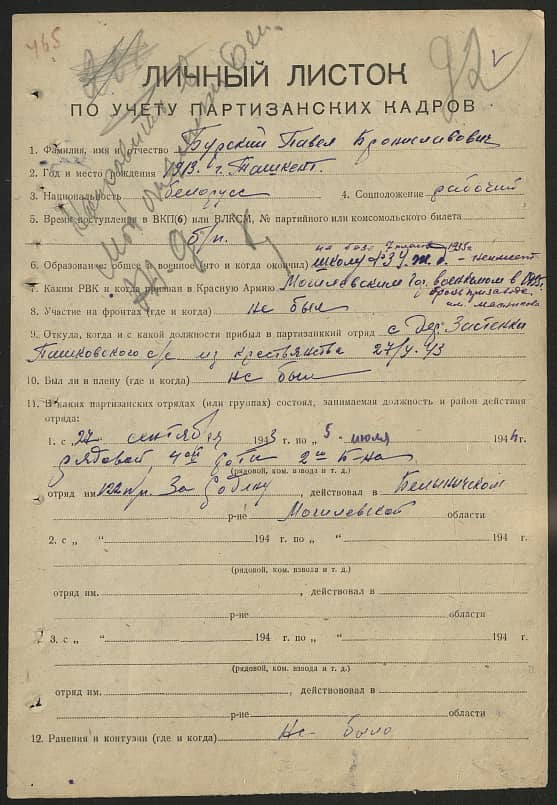 465
92
ЛИЧНЫЙ ЛИСТОК
ПО УЧЕТУ ПАРТИЗАНСКИХ КАДРОВ
1. Фамилия, имя и отчество Бурский Павел Брониславович
2. Год и место рождения 1913 г. г. Ташкент.
3. Национальность белорусс 4. Соцположение рабочий
5. Время поступления в ВКП(б) или ВЛКСМ, № партийного или комсомольского билета
б/п.
6. Образование общее и военное (что и когда окончил) школу ФЗУ ж.д.
7. Каким РВК и когда призван в Красную Армию Могилевским Гор. военкомом в
8. Участие на фронтах (где и когда) не был
9. Откуда, когда и с какой должности прибыл в партизанкий отряд с дер. Застенки
Пашковского с/с из крестьянства 27/
10. Был ли в плену (где и когда) не был
11. В каких партизанских отрядах (или группах) состоял, занимаемая должность и район действия
отряда:
1. с „27 сентября 1943 г. по „5 июля 1944 г.
рядовой, 4ой роты 2го б-на
(рядовой, ком. взвода и т. д.)
отряд им. 122 п/п. За Родину, действовал в Белыничском
р-не Могилевской области
2. с „ “ 194 г. по „ “ 194 г.
(рядовой, ком. взвода и т. д.)
отряд им. , действовал в
р-не области
3. с „ “ 194 г. по „ “ 194 г.
(рядовой, ком. взвода и т. д.)
отряд им. , действовавал в
р-не области
12. Ранения и контузии (где и когда) не было